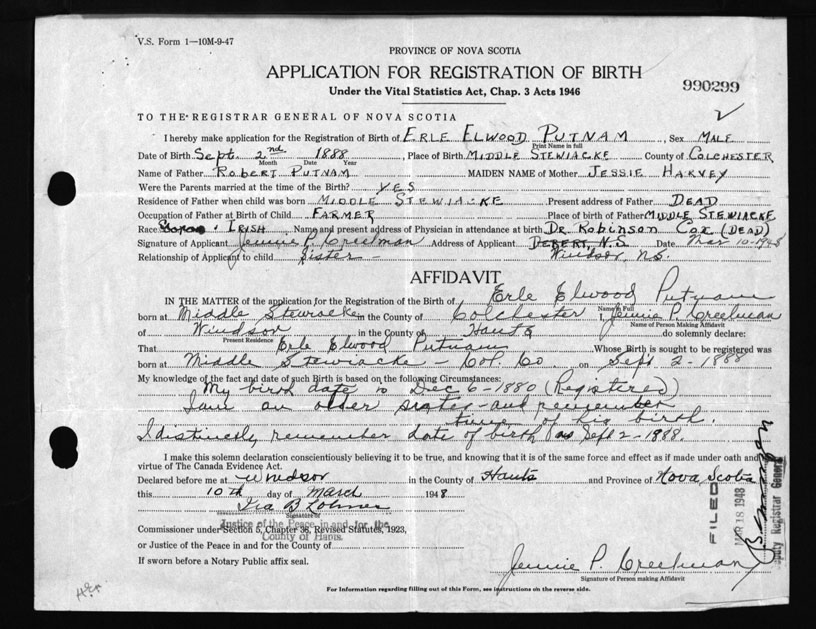 V.S. Form 1—10M-9-47
PROVINCE OF NOVA SCOTIA
APPLICATION FOR REGISTRATION OF BIRTH
990299
Under the Vital Statistics Act, Chap. 3 Acts 1946
TO THE REGISTRAR GENERAL OF NOVA SCOTIA
I hereby make application for the Registration of Birth of ERLE ELWOOD PUTNAM, Sex MALE
Print Name in full
Date of Birth Sept. 2nd 1888, Place of Birth MIDDLE STEWIACKE County of COLCHESTER
Month Date Year
Name of Father ROBERT PUTNAM MAIDEN NAME of Mother JESSIE HARVEY
Were the Parents married at the time of the Birth? YES
Residence of Father when child was born MIDDLE STEWIACKE Present address of Father DEAD
Occupation of Father at Birth of Child FARMER Place of birth of Father MIDDLE STEWIACKE
Race IRISH Name and present address of Physician in attendance at birth DR. ROBINSON COX (DEAD)
Signature of Applicant Jennie P. Creelman Address of Applicant DEBERT, N.S. Date Mar 10-1948
Relationship of Applicant to child Sister Windsor N.S.
AFFIDAVIT
IN THE MATTER of the application for the Registration of the Birth of Erle Elwood Putnam
Name in Full
born at Middle Stewiacke in the County of Colchester I, Jennie P. Creelman
Name of Person Making Affidavit
of Windsor in the County of Hants do solemnly declare:
Present Residence
That Erle Elwood Putnam Whose Birth is sought to be registered was
born at Middle Stewiacke Col. Co. on Sept 2-1888
My knowledge of the fact and date of such Birth is based on the following Circumstances:
My birth date is Dec 6-1880 (Registered)
I am an older sister and remember
time of his birth.
I distinctly remember date of birth as Sept 2-1888.
I make this solemn declaration conscientiously believing it to be true, and knowing that it is of the same force and effect as if made under oath and
virtue of The Canada Evidence Act.
Declared before me at Windsor in the County of Hants and Province of Nova Scotia
this 10th day of March 1948
Signature of
Commissioner under Section 5, Chapter 36, Revised Statutes, 1923,
Justice of the Peace in and for the
County of Hants.
or Justice of the Peace in and for the County of
If sworn before a Notary Public affix seal.
Jennie P. Creelman
Signature of Person making Affidavit
For Information regarding filling out of this Form, see instructions on the reverse side.
FILED
MAR 18 1948
Deputy Registrar General